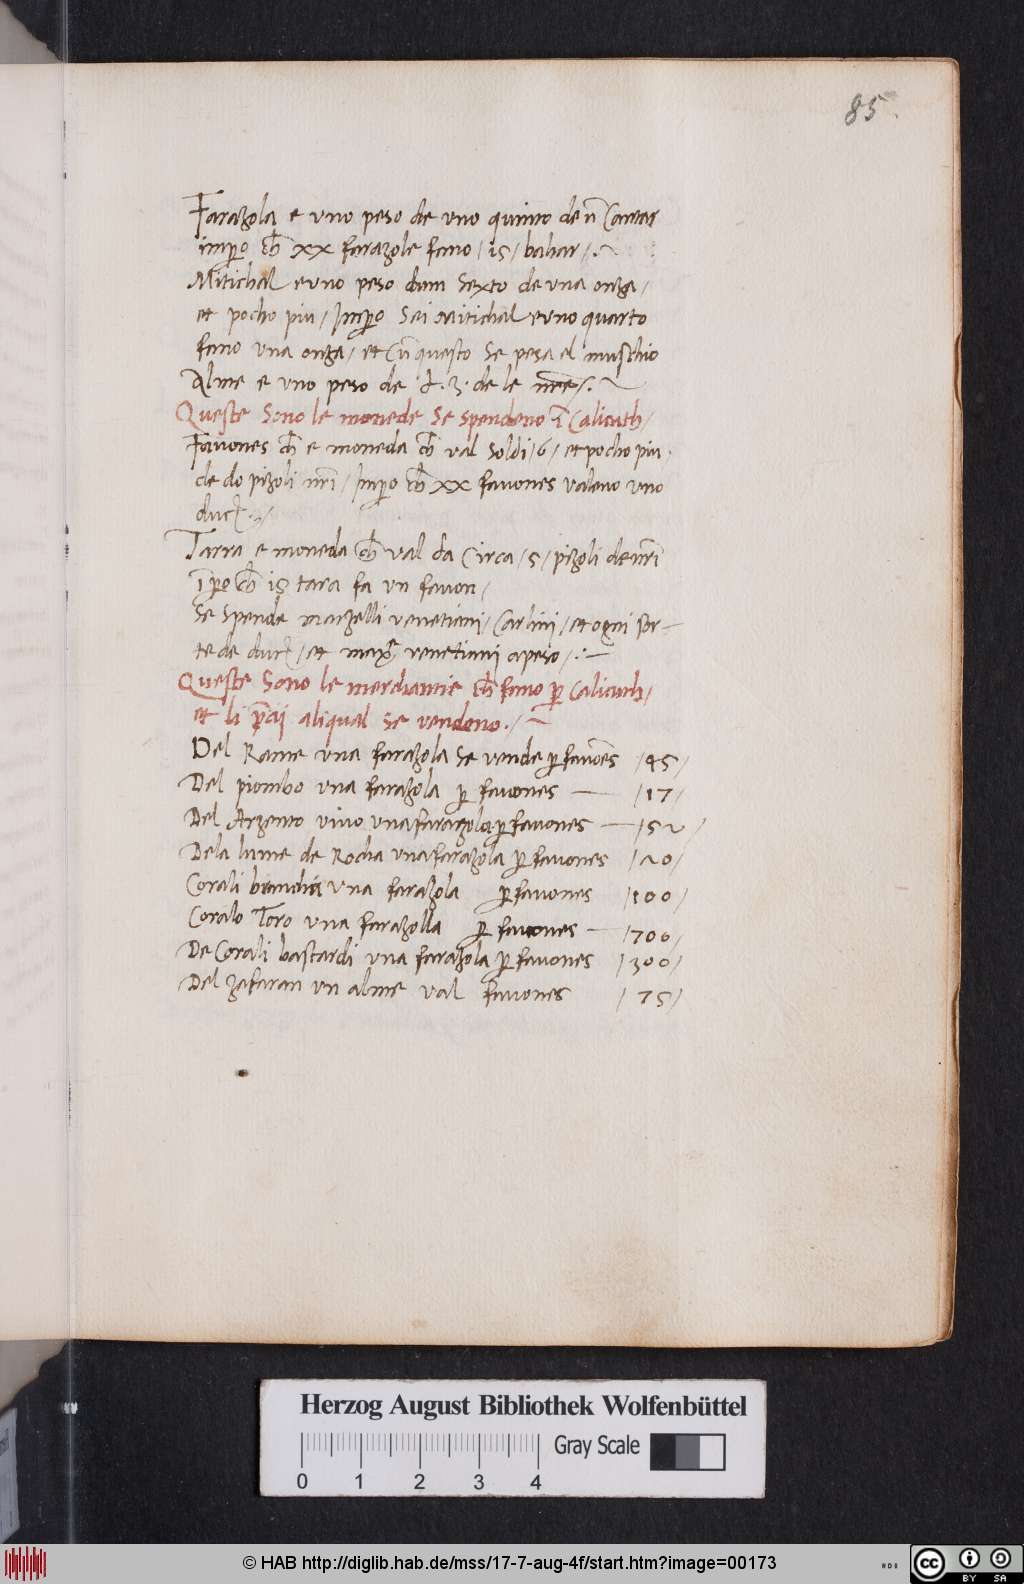 85
Farazola e vno peso de vno quinto de nr̃i Cantar
imꝑo ch̃ xx farazole fano / 15 / bahar /.
Mitichal e vno peso dum sexto de vna onza /
et pocho piu / Imꝑo sei Mitichal e vno quarto
fano vna onza / et cũ questo se pesa el muschio
Alme e vno peso de £. 3. de le nr̃e /.
Queste sono le monede se spendeno ĩ Calicuth /
Fauones ch̃ e moneda ch̃ val soldi / 6 / et pocho piu
de do pizoli nr̃i / Imꝑo ch̃ xx fauones valeno vno
duct.
Tarra e moneda ch̃ val da Circa / 5 / pizoli de nr̃i
ĩꝑo ch̃ 15 tara fa vn fauon /
Se spende marzelli venetiani / Carlini / et ogni sor-
te de duct / et max̃ venetiani a peso /.
Queste sono le merchantie ch̃ fano ꝑ Calicuth /
et li p̃cij aliqual se vendeno. /
Del Rame vna farazola se vende ꝑ fauões / 45 /
Del piombo vna farazola ꝑ fauones / 17 /
Del Argento viuo vna farazola ꝑ fauones / 52 /
Dela lume de Rocha vna farazola ꝑ fauones / 20 /
Corali bianchi vna farazola ꝑ fauones / 100 /
Coralo Toro vna farazolla ꝑ fauones / 700 /
De Corali bastardi vna farazola ꝑ fauones / 300 /
Del zafaran vn alme val fauones / 75 /
Herzog August Bibliothek Wolfenbüttel
Gray Scale
0 1 2 3 4
© HAB http://diglib.hab.de/mss/17-7-aug-4f/start.htm?image=00173
cc BY SA